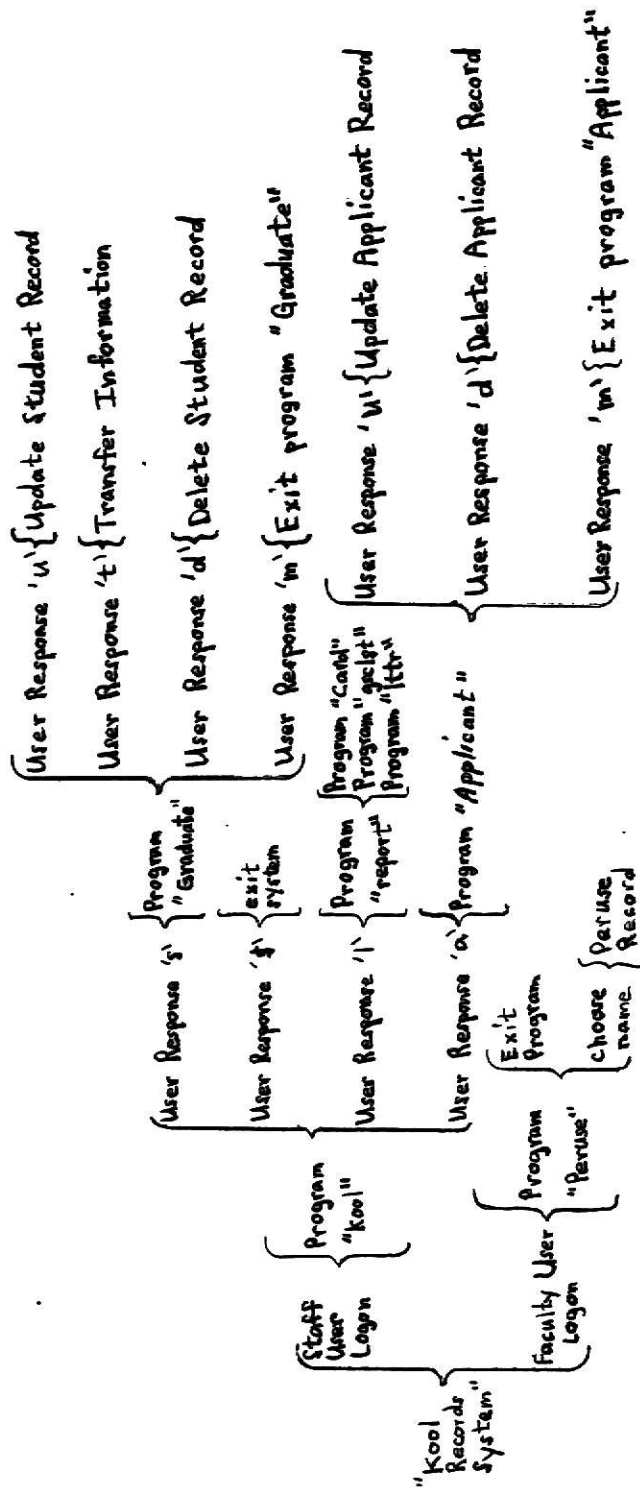 "Kool
Records
System"
Staff
User
Logon
Program
"Kool"
User Response 's'
Program
"Graduate"
User Response 'u' {Update Student Record
User Response 't' {Transfer Information
User Response 'd' {Delete Student Record
User Response 'm' {Exit program "Graduate"
User Response
exit
system
User Response 'l'
Program
"report"
Program "Card"
Program
Program "lttr"
User Response 'a'
Program "Applicant"
User Response 'u' {Update Applicant Record
User Response 'd' {Delete Applicant Record
User Response 'm' {Exit program "Applicant"
Faculty User
Logon
Program
"Peruse"
Exit
Program
choose
name
Peruse
Record